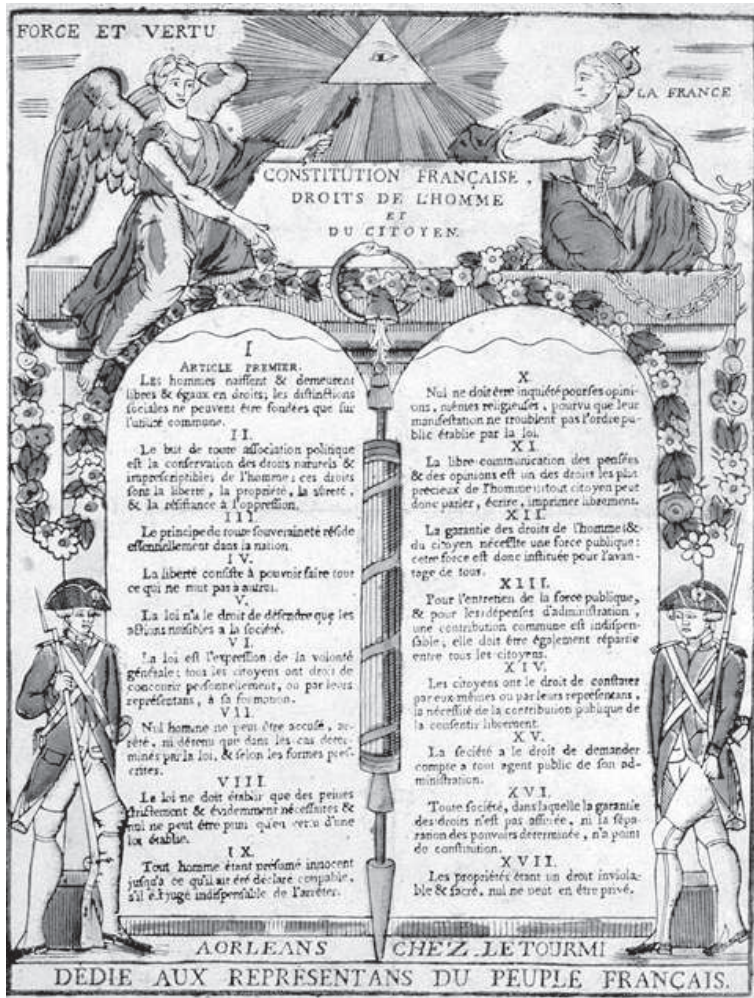 FORCE ET VERTU
LA FRANCE
CONSTITUTION FRANÇAISE,
DROITS DE L'HOMME
ET
DU CITOYEN.
I
ARTICLE PREMIER.
Les hommes naissent & demeurent
libres & égaux en droits; les distinctions
sociales ne peuvent être fondées que sur
l'utilité commune.
II.
Le but de toute association politique
est la conservation des droits naturels &
imprescriptibles de l'homme: ces droits
sont la liberté, la propriété, la sûreté,
& la résistance à l'oppression.
III
Le principe de toute souveraineté réside
essentiellement dans la nation.
IV.
La liberté consiste à pouvoir faire tout
ce qui ne nuit pas à autrui.
V.
La loi n'a le droit de défendre que les
actions nuisibles a la société.
VI
La loi est l'expression de la volonté
générale; tous les citoyens ont droit de
concourir personnellement, ou par leurs
représentans, à sa formation.
VII.
Nul homme ne peut être accusé, ar-
rêté, ni détenu que dans les cas deter-
minés par la loi, & selon les formes pres-
crites.
VIII
La loi ne doit établir que des peines
strictement & évidemment nécessaires &
nul ne peut être puni qu'en vertu d'une
loi établie.
IX.
Tout homme étant présumé innocent
jusqu'a ce qu'il ait été déclaré coupable,
s'il est jugé indispensable de l'arrêter.
X.
Nul ne doit être inquiété pour ses opini-
ons, mêmes religieuses, pourvu que leur
manifestation ne troublent pas l'ordre pu-
blic établie par la loi.
XI.
La libre communication des pensées
& des opinions est un des droits les plus
précieux de l'homme: tout citoyen peut
donc parler, écrire, imprimer librement.
XII.
La garantie des droits de l'homme &
du citoyen nécessite une force publique:
cette force est donc instituée pour l'avan-
tage de tous.
XIII.
Pour l'entretien de la force publique,
& pour les dépenses d'administration,
une contribution commune est indispen-
sable; elle doit être également répartie
entre tous les citoyens.
XIV.
Les citoyens ont le droit de constater
par eux-mêmes ou par leurs representans,
la nécessité de la contribution publique de
la consentir librement.
XV.
La société a le droit de demander
compte a tout agent public de son ad-
ministration.
XVI.
Toute société, dans laquelle la garantie
des droits n'est pas assurée, ni la sépa-
ration des pouvoirs determinée, n'a point
de constitution.
XVII.
Les propriétés étant un droit inviola-
ble & sacré, nul ne peut en être privé.
A ORLEANS CHEZ LETOURMI
DÉDIE AUX REPRÉSENTANS DU PEUPLE FRANÇAIS.